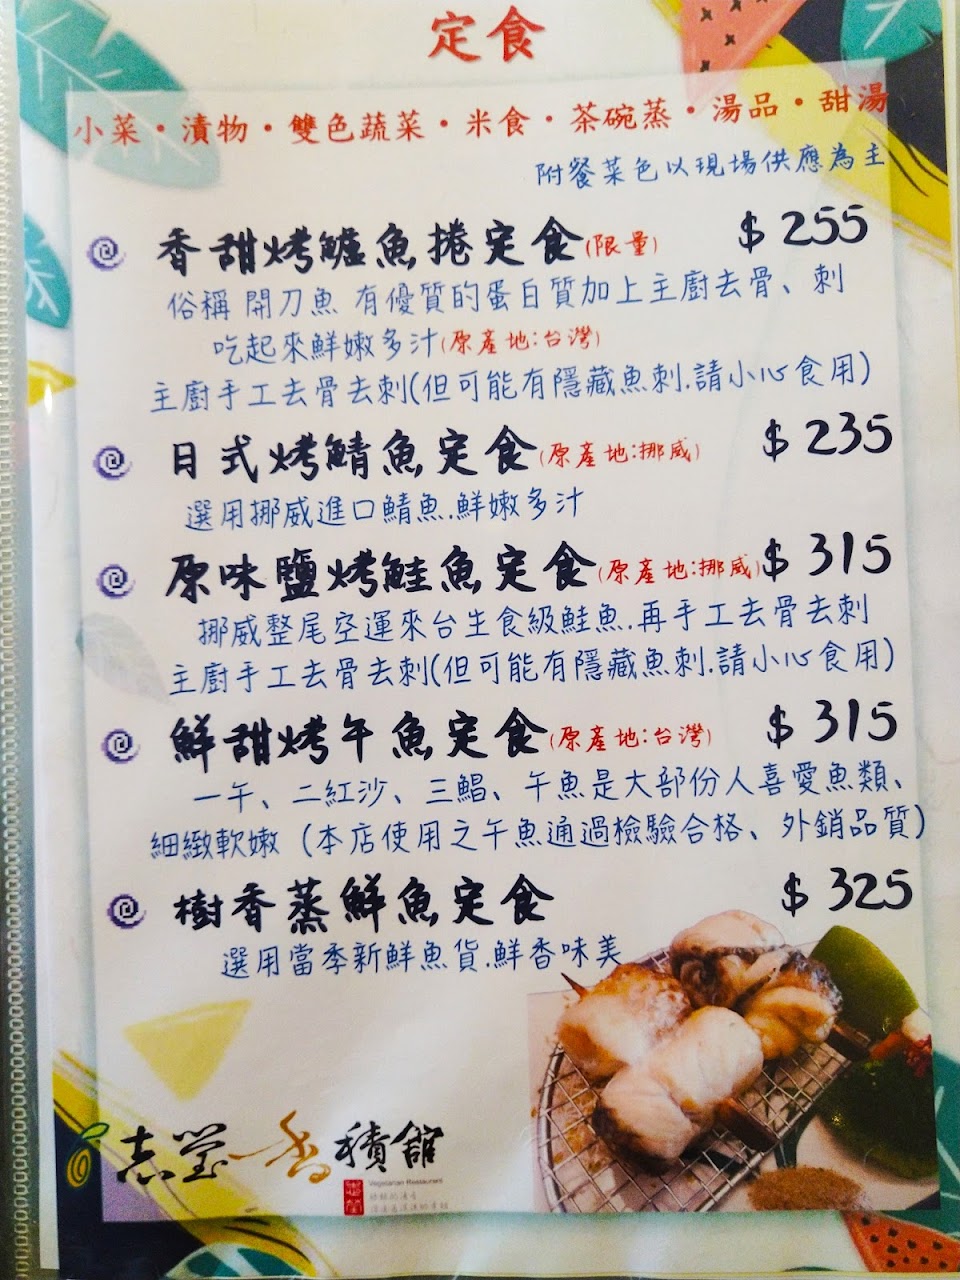 定食
小菜・漬物・雙色蔬菜・米食・茶碗蒸・湯品・甜湯
附餐菜色以現場供應為主
香甜烤鱸魚捲定食(限量) $ 255
俗稱 開刀魚 有優質的蛋白質加上主廚去骨、刺
吃起來鮮嫩多汁(原產地:台灣)
主廚手工去骨去刺(但可能有隱藏魚刺.請小心食用)
日式烤鯖魚定食(原產地:挪威) $ 235
選用挪威進口鯖魚.鮮嫩多汁
原味鹽烤鮭魚定食(原產地:挪威) $ 315
挪威整尾空運來台生食級鮭魚.再手工去骨去刺
主廚手工去骨去刺(但可能有隱藏魚刺.請小心食用)
鮮甜烤午魚定食(原產地:台灣) $ 315
一午、二紅沙、三鯧、午魚是大部份人喜愛魚類、
細緻軟嫩 (本店使用之午魚通過檢驗合格、外銷品質)
樹香蒸鮮魚定食 $ 325
選用當季新鮮魚貨.鮮香味美
志瑩 香積館
Vegetarian Restaurant